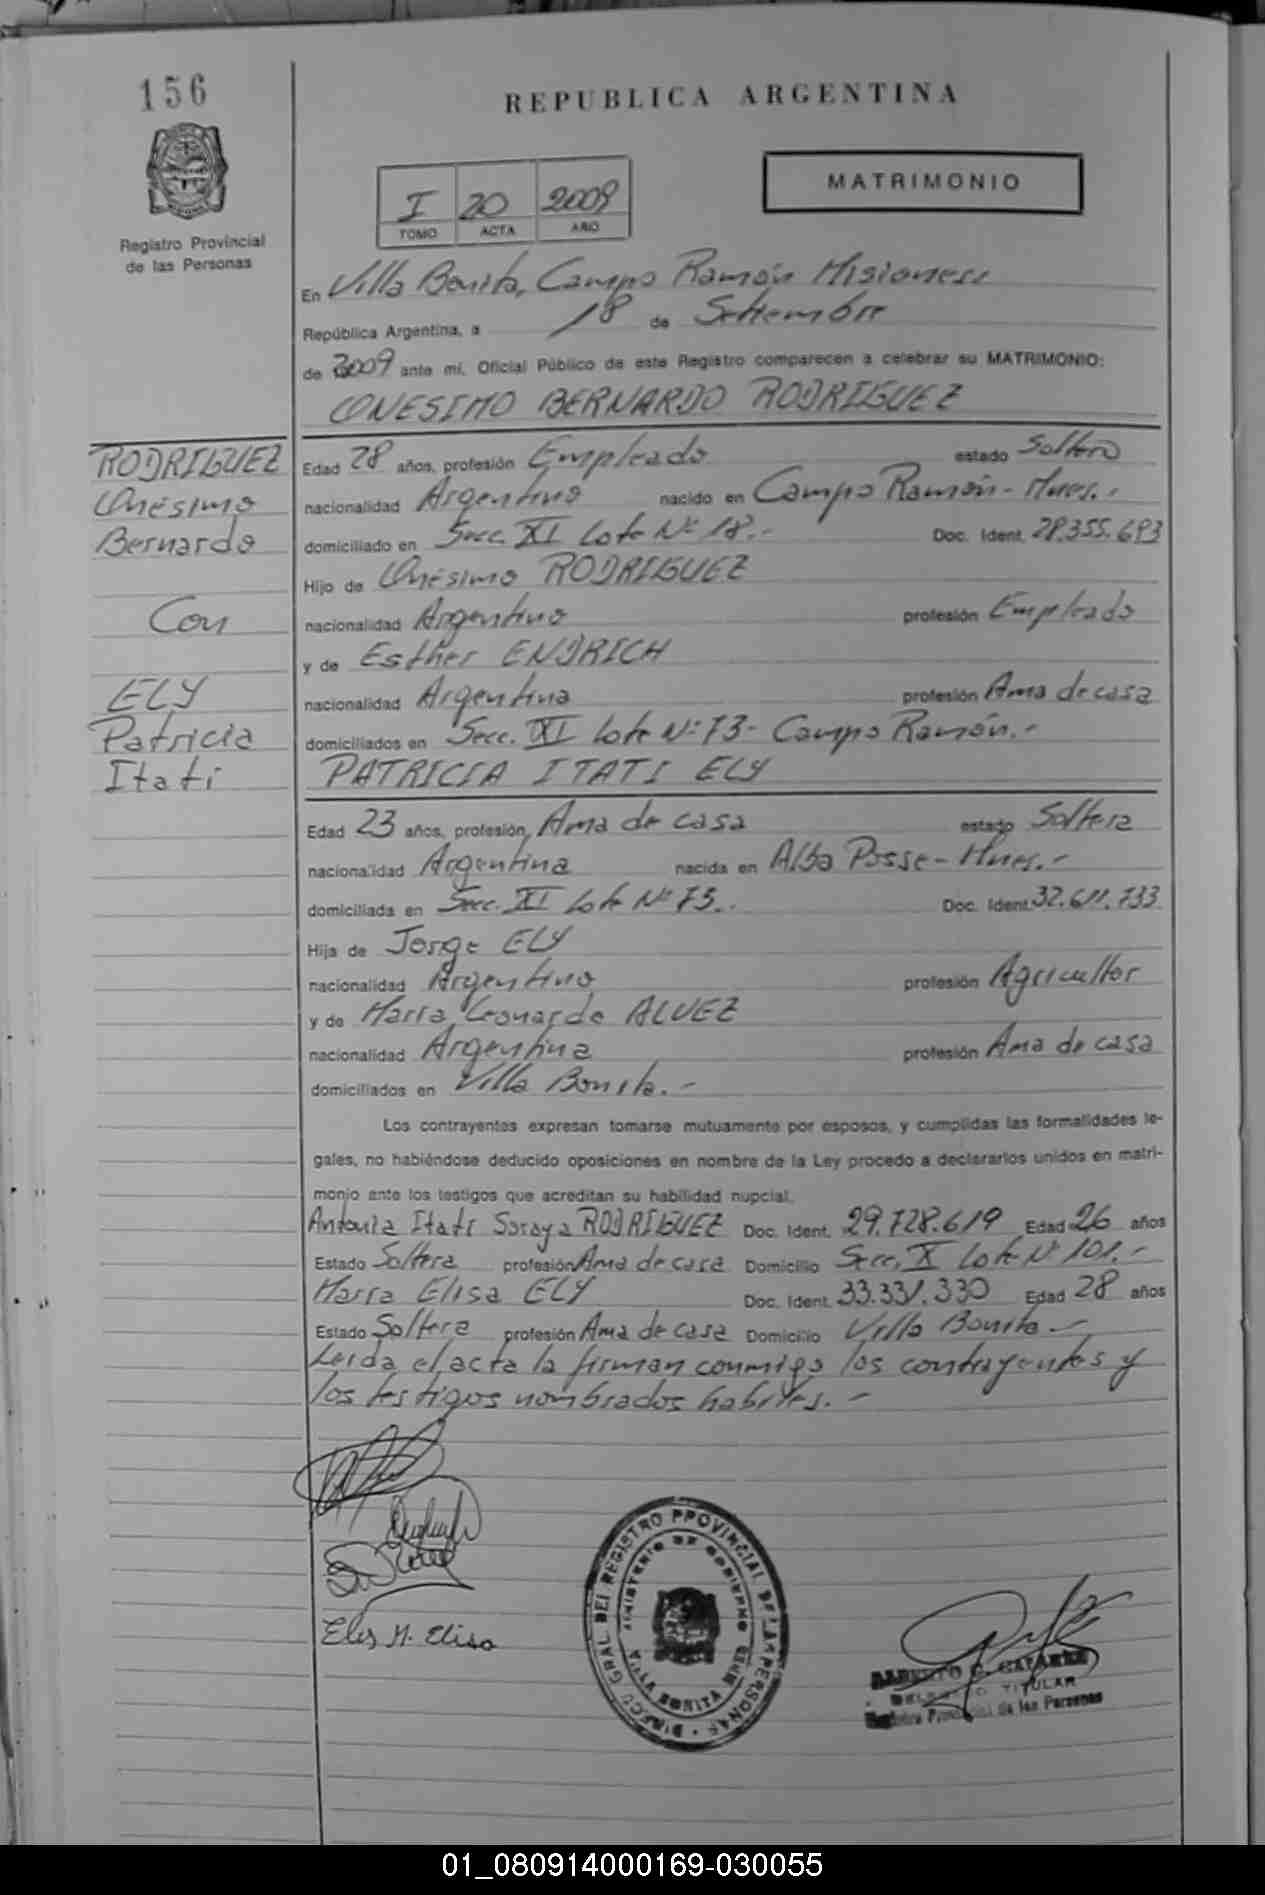 156
REPUBLICA ARGENTINA
MATRIMONIO
I 20 2009
TOMO ACTA AÑO
Registro Provincial
de las Personas
En Villa Bonita, Campo Ramón Misiones
República Argentina, a 18 de Setiembre
de 2009 ante mí, Oficial Público de este Registro comparecen a celebrar su MATRIMONIO:
ONESIMO BERNARDO RODRIGUEZ
RODRIGUEZ
Onésimo
Bernardo
Con
ELY
Patricia
Itati
Edad 28 años, profesión Empleado estado Soltero
nacionalidad Argentino nacido en Campo Ramón - Mnes.-
domiciliado en Secc. XI Lote Nº 18.- Doc. Ident. 28.355.693
Hijo de Onésimo RODRIGUEZ
nacionalidad Argentino profesión Empleado
y de Esther ENDRICH
nacionalidad Argentina profesión Ama de casa
domiciliados en Secc. XI Lote Nº 73- Campo Ramón.-
PATRICIA ITATI ELY
Edad 23 años, profesión Ama de casa estado Soltera
nacionalidad Argentina nacida en Alba Posse - Mnes.-
domiciliada en Secc. XI Lote Nº 73.- Doc. Ident. 32.611.733
Hija de Jorge ELY
nacionalidad Argentino profesión Agricultor
y de María Leonarda ALVEZ
nacionalidad Argentina profesión Ama de casa
domiciliados en Villa Bonita.-
Los contrayentes expresan tomarse mutuamente por esposos, y cumplidas las formalidades le-
gales, no habiéndose deducido oposiciones en nombre de la Ley procedo a declararlos unidos en matri-
monio ante los testigos que acreditan su habilidad nupcial.
Antonia Itati Soraya RODRIGUEZ Doc. Ident. 29.728.619 Edad 26 años
Estado Soltera profesión Ama de casa Domicilio Secc. X Lote Nº 101.-
María Elisa ELY Doc. Ident. 33.331.330 Edad 28 años
Estado Soltera profesión Ama de casa Domicilio Villa Bonita.-
Leída el acta la firman conmigo los contrayentes y
los testigos nombrados habiles.-
Ely M. Elisa
DIRECC. GRAL. DEL REGISTRO PROVINCIAL DE LAS PERSONAS
MINISTERIO DE GOBIERNO
VILLA BONITA
DELEGADO TITULAR
Registro Provincial de las Personas
01_080914000169-030055